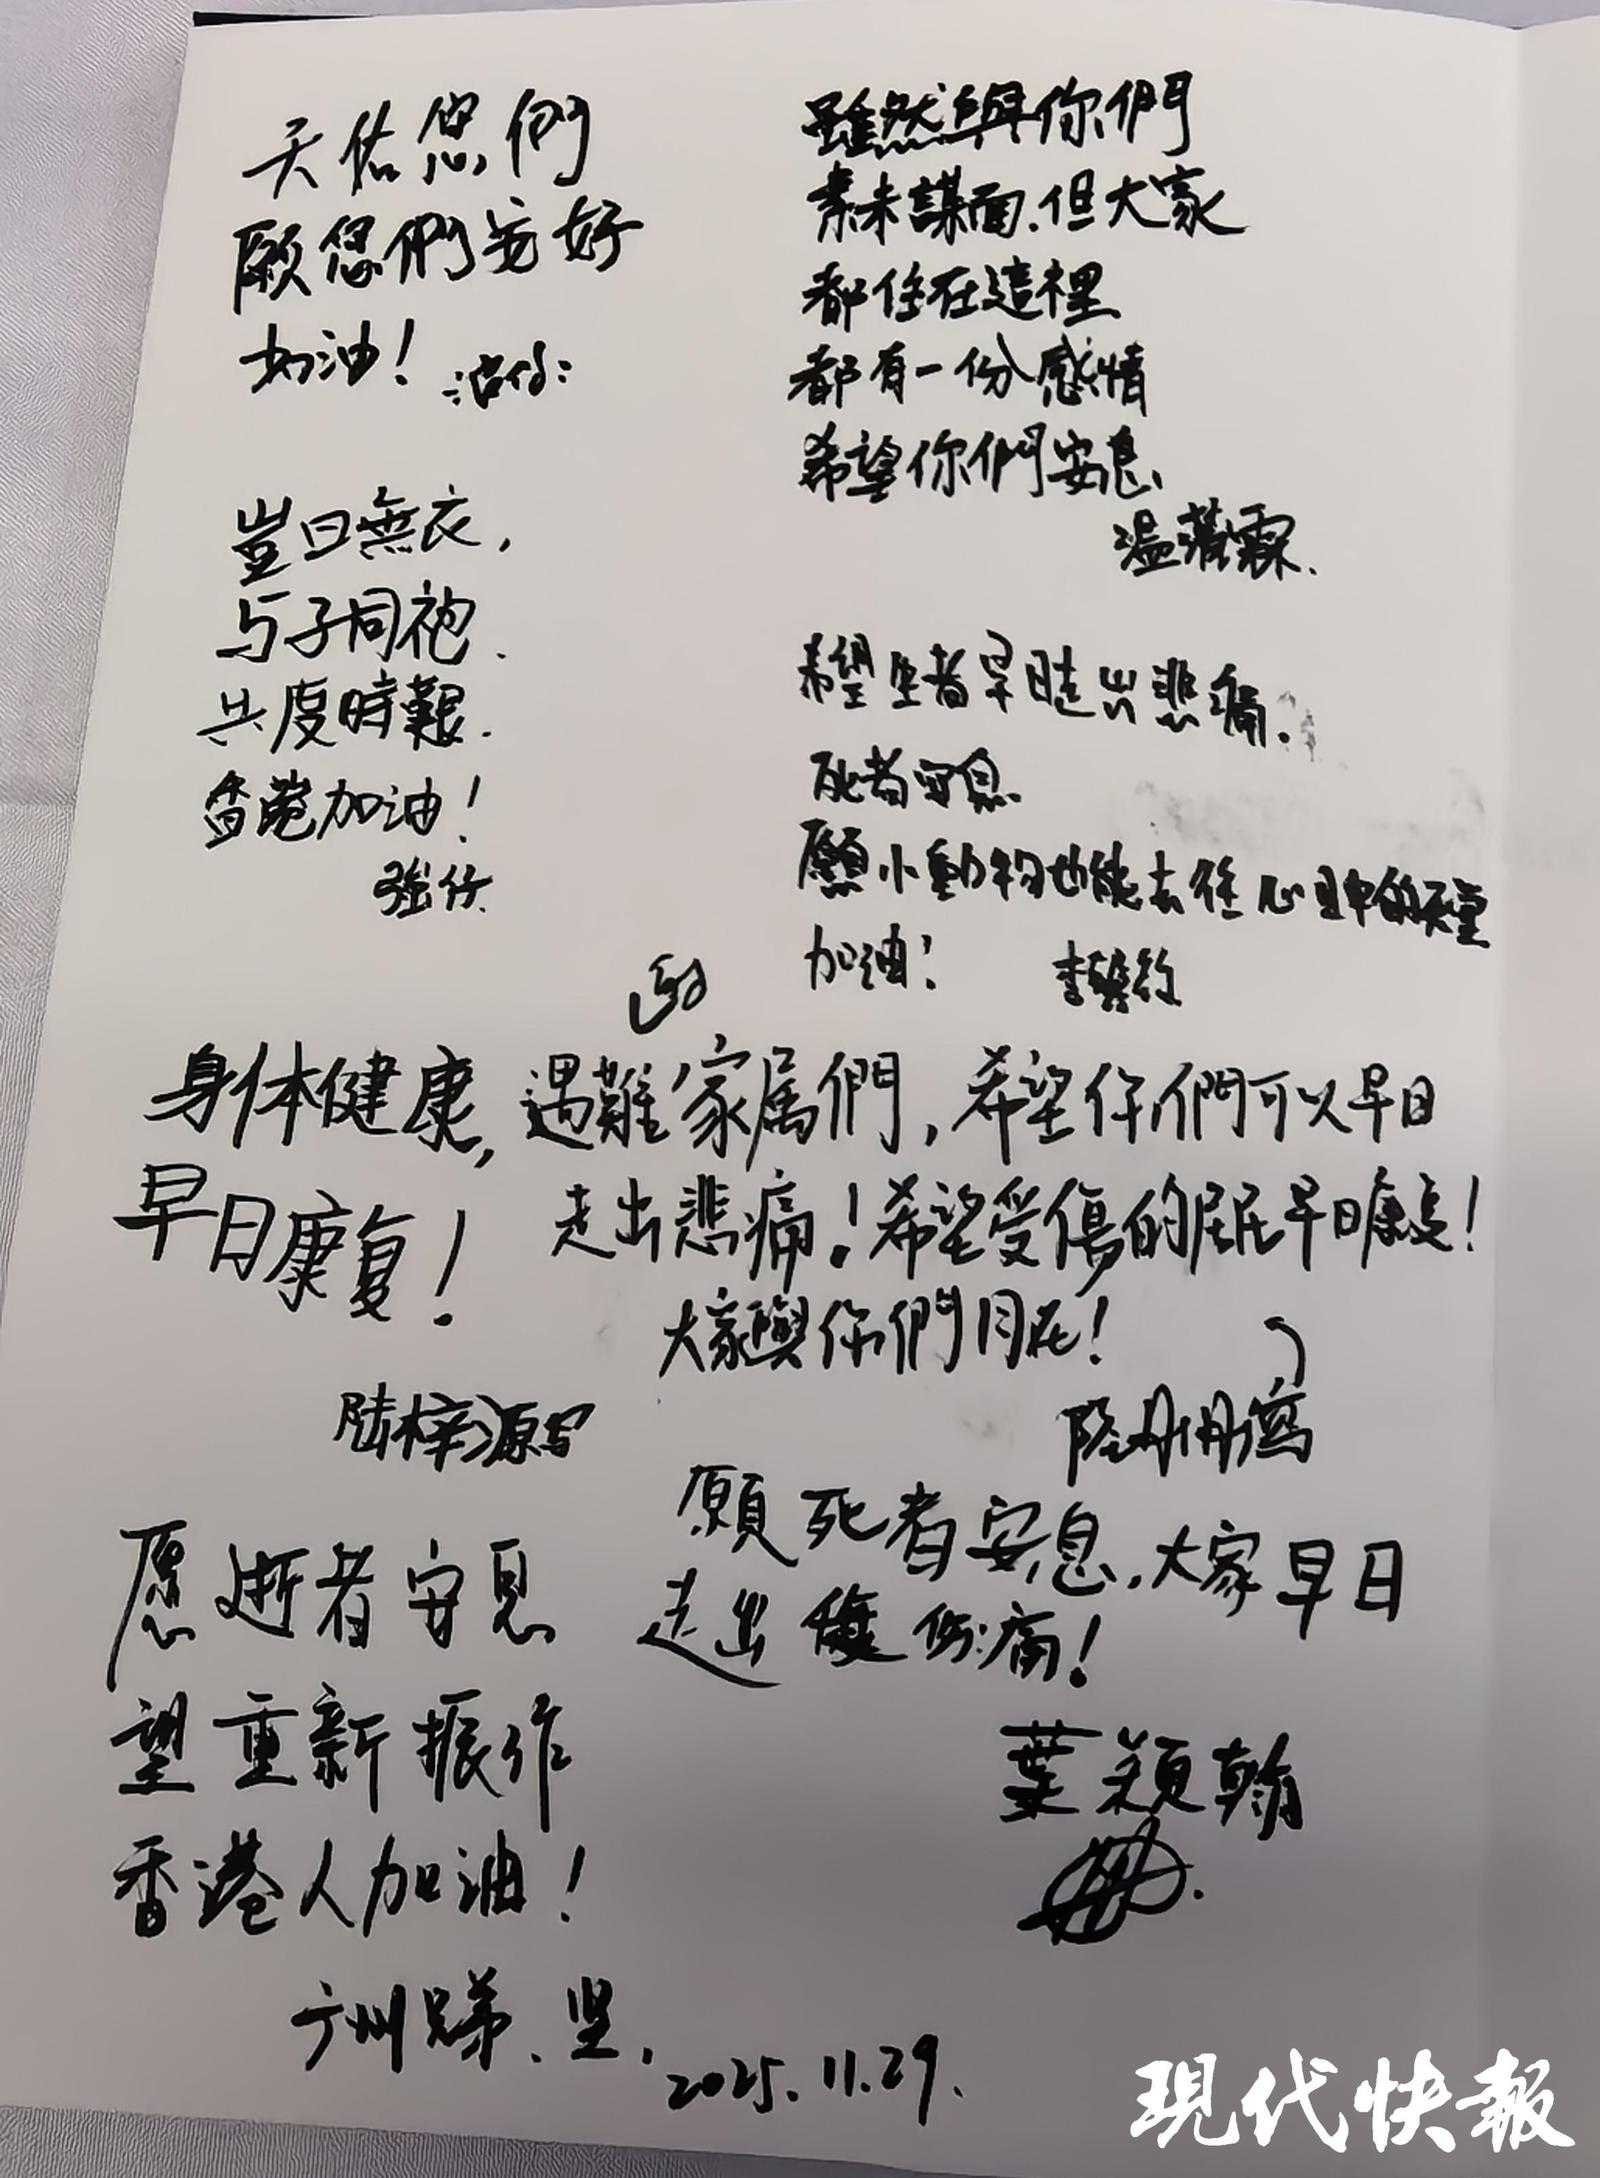 天佑您們
願您們安好
加油！
豈曰無衣，
与子同袍.
共度時艱.
香港加油！
強仔
雖然與你們
素未謀面.但大家
都住在這裡
都有一份感情
希望你們安息
温
霖.
希望生者早日走出悲痛.
死者安息
願小動物也能去往心目中的天堂
加油！
李
致
身体健康,
早日康复！
陆梓源写
遇難家属們，希望你們可以早日
走出悲痛！希望受傷的居民早日康复！
大家與你們同在！
陸丹丹寫
愿逝者安息
望重新振作
香港人加油！
广州兄弟、坚.
2025.11.29.
願死者安息.大家早日
走出傷痛！
葉穎翰
現代快報